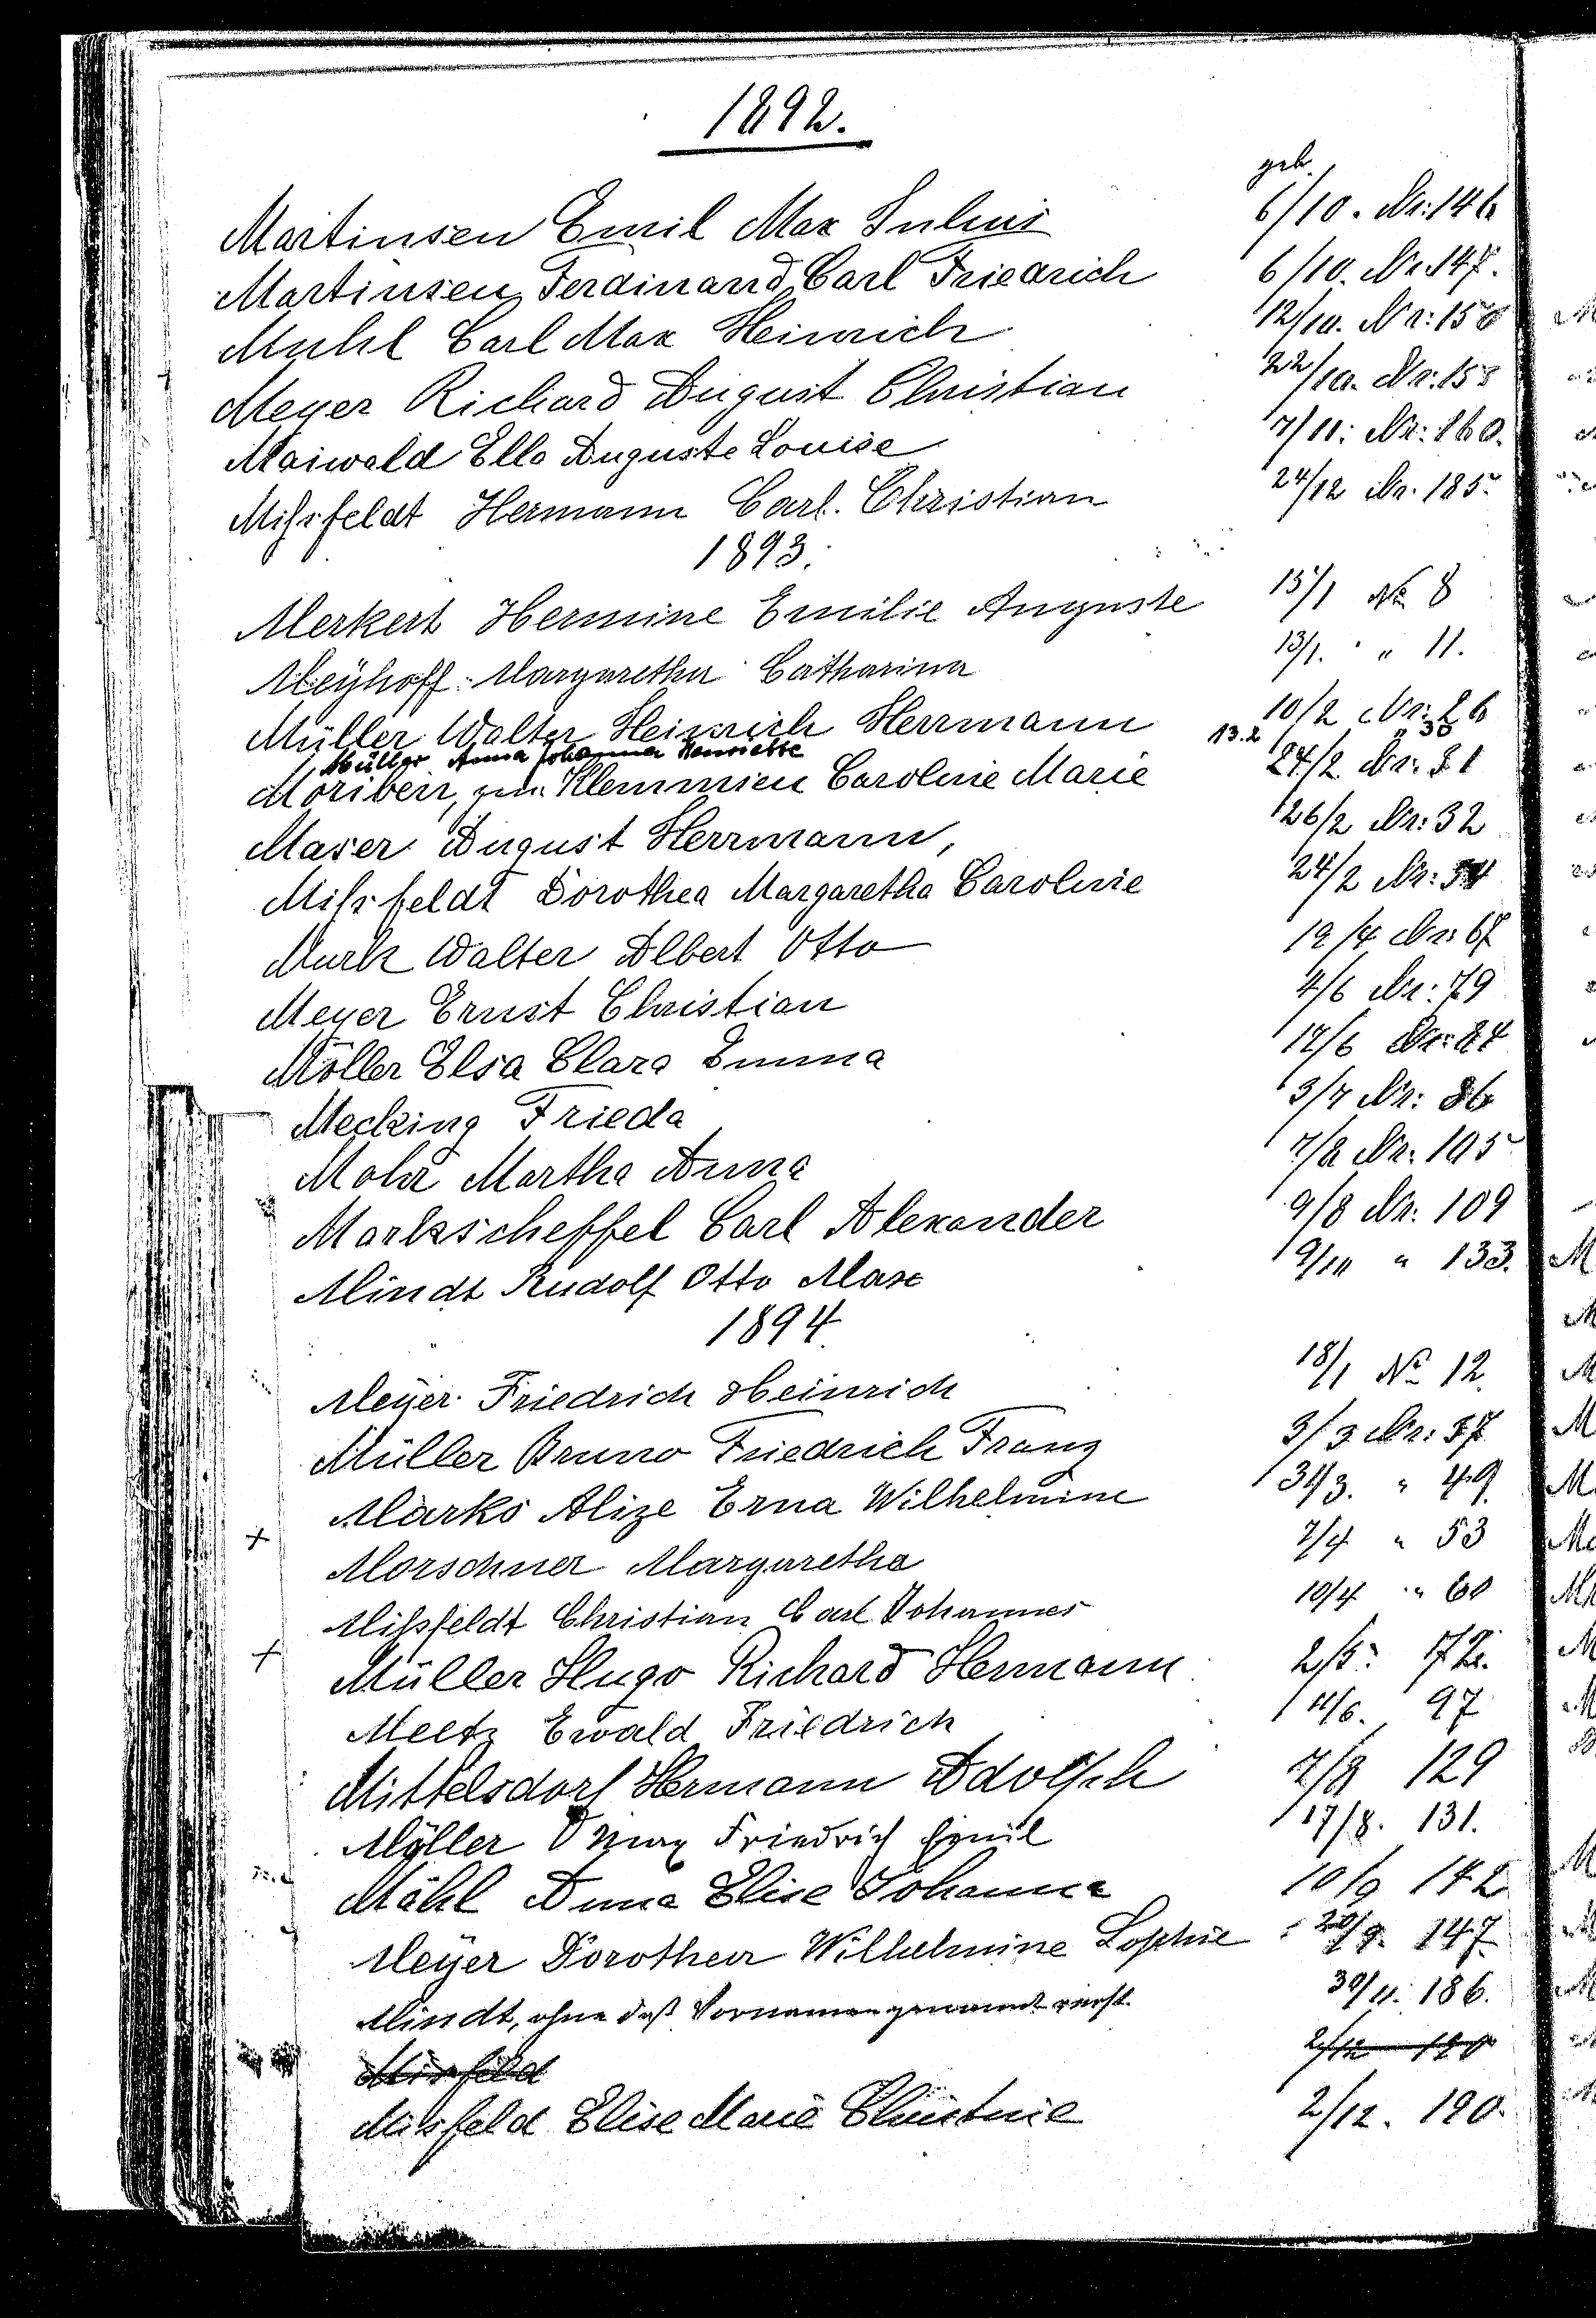 1892.
geb.
Martinsen Emil Max Julius 6/10. Nr: 146
Martinsen, Ferdinand Carl Friedrich 6/10. Nr. 147.
Muhl Carl Max Heinrich 12/10. Nr: 150
Meyer Richard August Christian 22/10. Nr: 158
Maiwald Ella Auguste Louise 7/11. Nr: 160.
Mißfeldt Hermann Carl. Christian 24/12 Nr. 185.
1893.
Merkert Hermine Emilie Auguste 15/1 No 8
Meyhoff Margaretha Catharina 13/1. " 11.
Müller Walter Heinrich Herrmann 10/2 Nr: 26
Müller Anna Johanna Henriette 13.2 " 38
Klemmsen Caroline Marie 24/2 Nr. 31
Maser August Herrmann, 26/2 Nr: 32
Mißfeldt Dorothea Margaretha Caroline 24/2 Nr:
Murk Walter Albert Otto 19/4 Nr: 67
Meyer Ernst Christian 4/6 Nr: 79
Möller Elsa Clara Emma 17/6 Nr: 84
Mecking Frieda 3/7 Nr: 86
Mohr Martha Anna 7/8 Nr. 105
Markscheffel Carl Alexander 9/8 Nr. 109
Mindt Rudolf Otto Max 9/10 " 133.
1894
Meyer Friedrich Heinrich 18/1 No 12.
Müller Bruno Friedrich Franz 3/3 Nr: 37
Marks Alize Erna Wilhelmine 31/3. " 49.
+ Morschner Margaretha 7/4 " 53
Mißfeldt Christian Carl Johannes 10/4 " 60
+ Müller Hugo Richard Hermann 2/5. 72.
Meetz Ewald Friedrich 11/6. 97
Mittelsdorf Hermann Adolph 7/8 129
Möller Max Friedrich Emil 17/8. 131.
Mähl Anna Elise Johanna 10/9 142
Meyer Dorothea Wilhelmine Sophie 20/9. 147
Mindt, ohne daß Vornamen genannt 30/11. 186.
Misfeld 2/12 190
Misfeld Elise Marie Christine 2/12. 190.